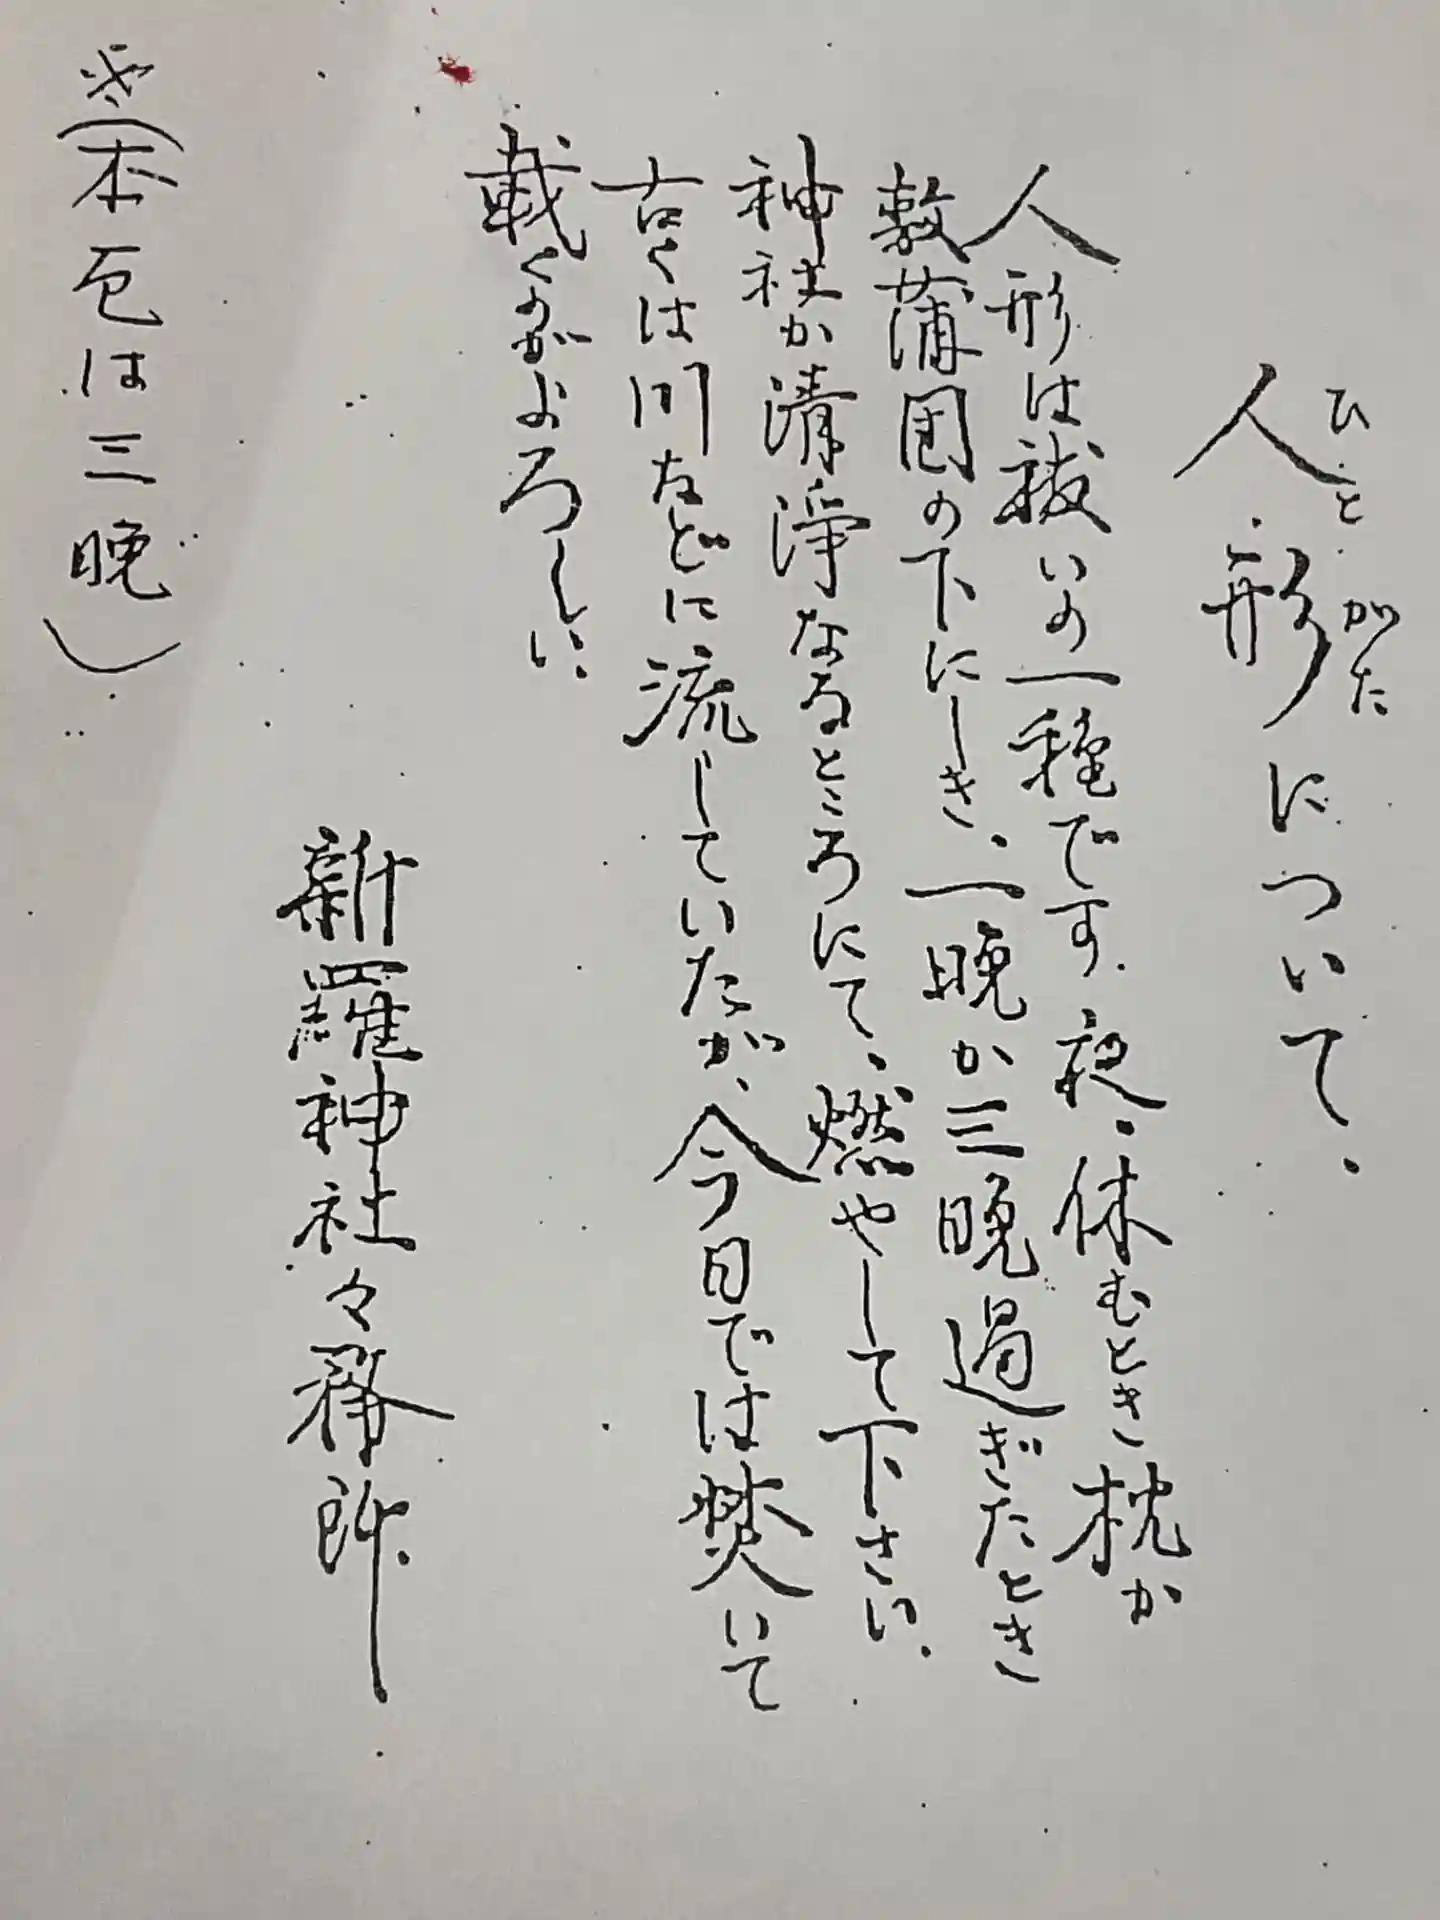 人形について、
ひとがた
人形は祓いの一種です。夜、休むとき枕か
敷蒲団の下にしき、一晩か三晩過ぎたとき
神社か清浄なるところにて、燃やして下さい。
古くは川などに流していたが、今日では焚いて
載くのがよろしい。
新羅神社々務所
(本厄は三晩)